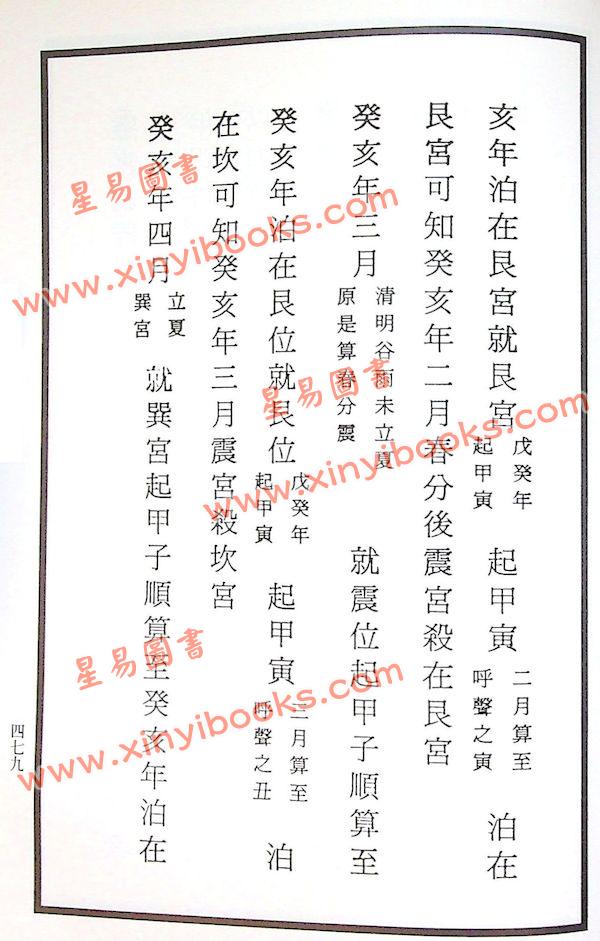 亥年泊在艮宮就艮宮 戊癸年 起甲寅 起甲寅 二月算至 呼聲之寅 泊在
艮宮可知癸亥年二月春分後震宮殺在艮宮
癸亥年三月 清明谷雨未立夏 原是算春分震 就震位起甲子順算至
癸亥年泊在艮位就艮位 戊癸年 起甲寅 起甲寅 三月算至 呼聲之丑 泊
在坎可知癸亥年三月震宮殺坎宮
癸亥年四月 立夏 巽宮 就巽宮起甲子順算至癸亥年泊在
四七九
星易圖書
www.xinyibooks.com
星易圖書
www.xinyibooks.com
星易圖書
www.xinyibooks.com